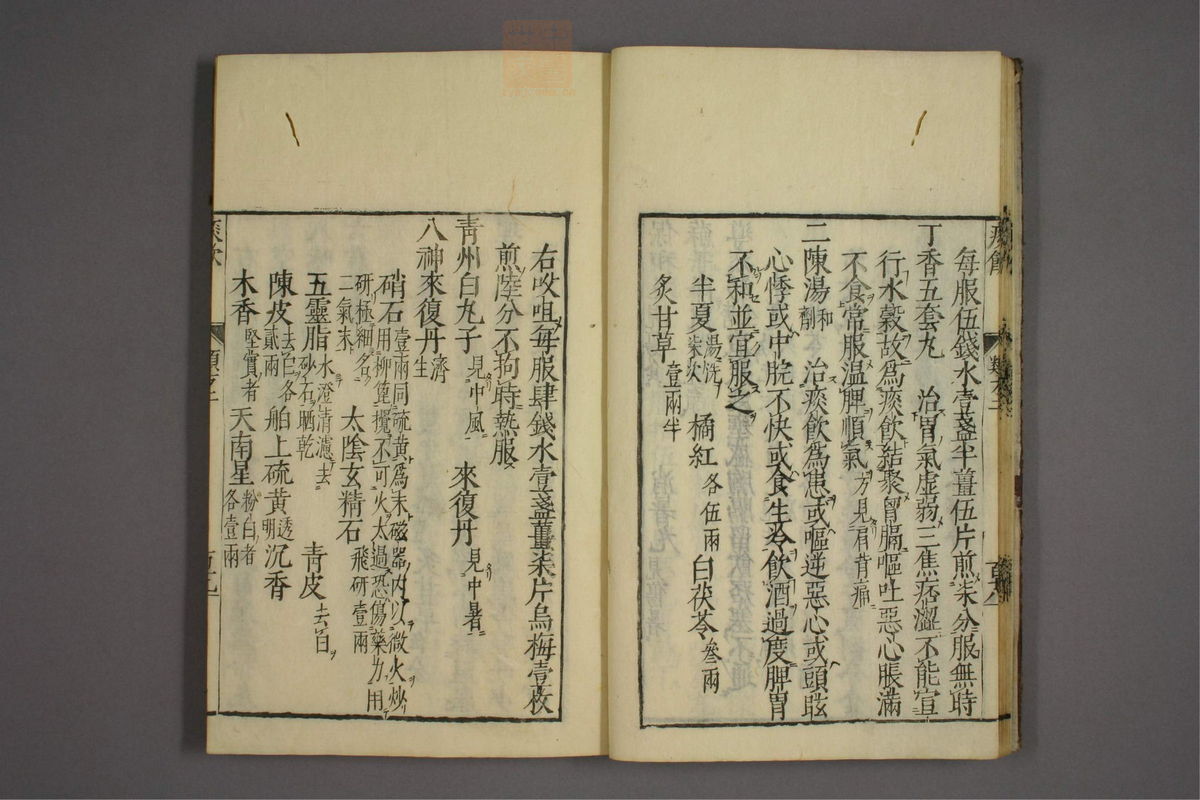 每服伍錢水壹盞半薑伍片煎柒分服無時
丁香五套丸 治胃氣虛弱三焦痞澀不能宣
行水穀故爲痰飲結聚胷膈嘔吐惡心脹滿
不食常服温脾順氣 方見肩背痛
二陳湯 和劑 治痰飲爲患或嘔逆惡心或頭眩
心悸或中脘不快或食生冷飲酒過度脾胃
不和並宜服之
半夏 湯洗柒次 橘紅 各伍兩 白茯苓 叄兩
炙甘草 壹兩半
右㕮咀每服肆錢水壹盞薑柒片烏梅壹枚
煎陸分不拘時熱服
青州白丸子 見中風 來復丹 見中暑
八神來復丹 濟生
硝石 壹兩同硫黃爲末磁器內以微火炒
用柳篦攪不可火太過恐傷藥力用
研極細名
二氣末 太陰玄精石 飛研壹兩
五靈脂 水澄清濾去
砂石晒乾 青皮 去白
陳皮 去白各
貳兩 舶上硫黃 透明 沉香
木香 堅實者 天南星 粉白者
各壹兩